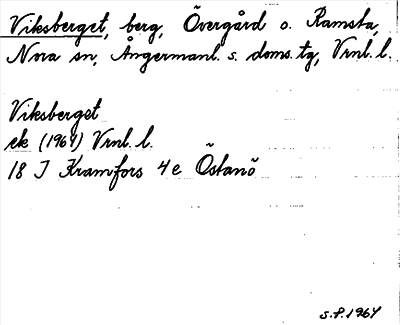 Viksberget, berg, Övergård o. Ramsta,
Nora sn, Ångermanl. s. doms.tg, Vrnl. l.
Viksberget
ek (1964) Vrnl. l.
18 I Kramfors 4e Östanö
S.P. 1964